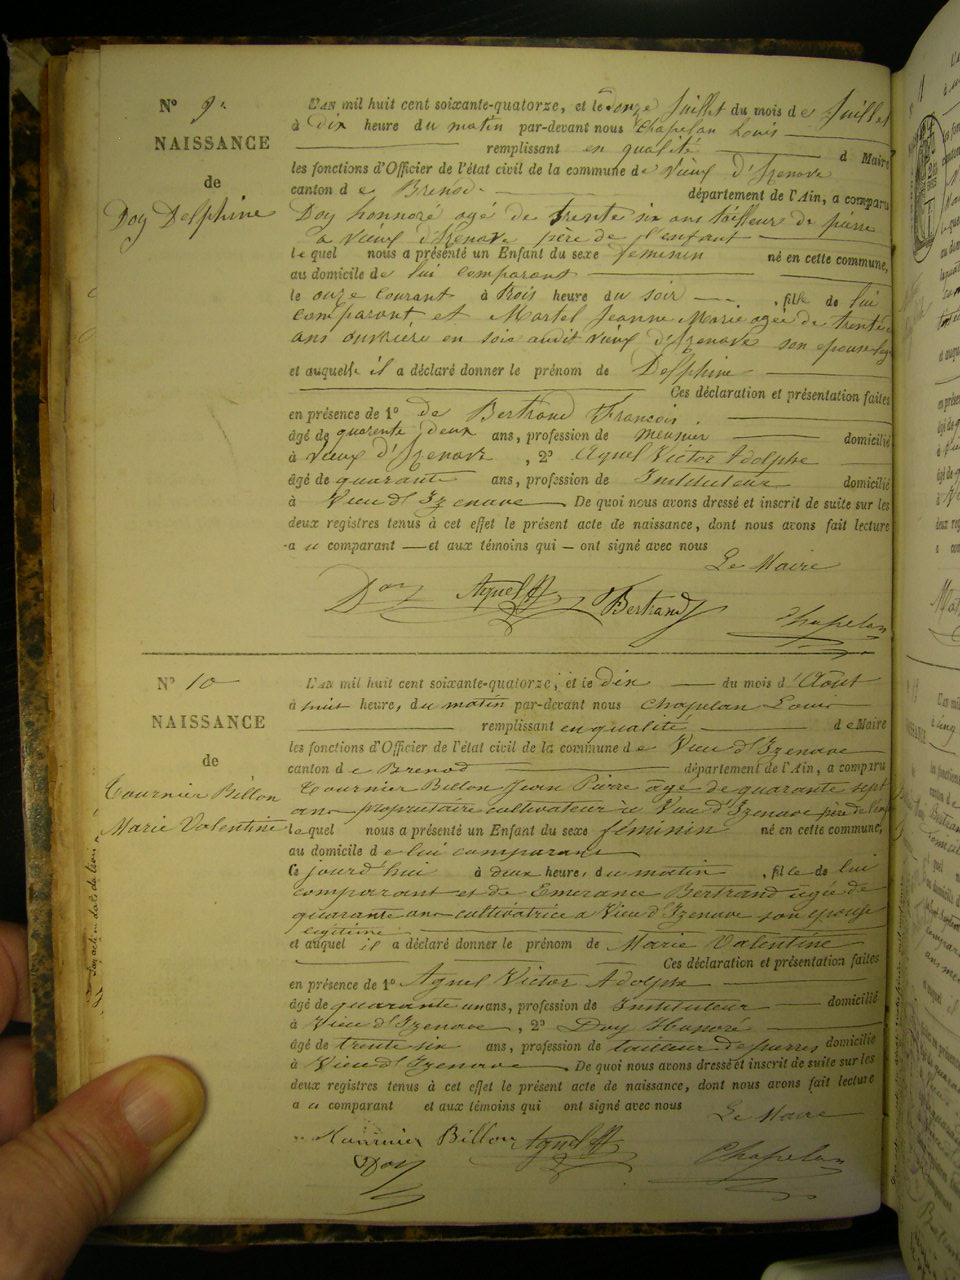 N° 9.
NAISSANCE
de
Doy Delphine
L'AN mil huit cent soixante-quatorze, et le onze Juillet du mois de Juillet
à Dix heure du matin par-devant nous Chapelan Louis
remplissant en qualité d Maire
les fonctions d'Officier de l'état civil de la commune de Vieux d'Izenave
canton de Brenod département de l'Ain, a comparu
Doy honnoré agé de trente six ans tailleur de pierre
a vieux d'Izenave père de l'enfant
lequel nous a présenté un Enfant du sexe feminin né en cette commune,
au domicile de lui comparant
le onze courant à trois heure du soir , fille de lui
comparant et Martel Jeanne Marie agée de trente
ans ouvrière en soie audit vieux d'Izenave son epouse
et auquelle il a déclaré donner le prénom de Delphine
Ces déclaration et présentation faites
en présence de 1° de Bertrand François
âgé de quarente deux ans, profession de meunier domicilié
à Vieux d'Izenave , 2° Aynel Victor Adolphe
âgé de quarante ans, profession de Instituteur domicilié
à Vieu d'Izenave De quoi nous avons dressé et inscrit de suite sur les
deux registres tenus à cet effet le présent acte de naissance, dont nous avons fait lecture
a u comparant et aux témoins qui ont signé avec nous
Le Maire
Doy Aynel Bertrand Chapelan
N° 10
NAISSANCE
de
Tournier Billon
Marie Valentine
L'AN mil huit cent soixante-quatorze, et le dix du mois d'Août
à huit heure, du matin par-devant nous Chapelan Louis
remplissant en qualité de Maire
les fonctions d'Officier de l'état civil de la commune de Vieu d'Izenave
canton de Brenod département de l'Ain, a comparu
Tournier Billon Jean Pierre âgé de quarante sept
ans propriétaire cultivateur à Vieu d'Izenave père de l'enf
lequel nous a présenté un Enfant du sexe féminin né en cette commune,
au domicile de lui comparant
Ce jourd'hui à deux heure, du matin , fille de lui
comparant et de Emerance Bertrand agée de
quarante ans cultivatrice a Vieu d'Izenave son épouse
legitime
et auquel il a déclaré donner le prénom de Marie Valentine
Ces déclaration et présentation faites
en présence de 1° Aynel Victor Adolphe
âgé de quarante un ans, profession de Instituteur domicilié
à Vieu d'Izenave , 2° Doy Honoré
âgé de trente six ans, profession de tailleur de pierres domicilié
à Vieu d'Izenave De quoi nous avons dressé et inscrit de suite sur les
deux registres tenus à cet effet le présent acte de naissance, dont nous avons fait lecture
a u comparant et aux témoins qui ont signé avec nous
Le Maire
Tournier Billon Aynel
Doy Chapelan